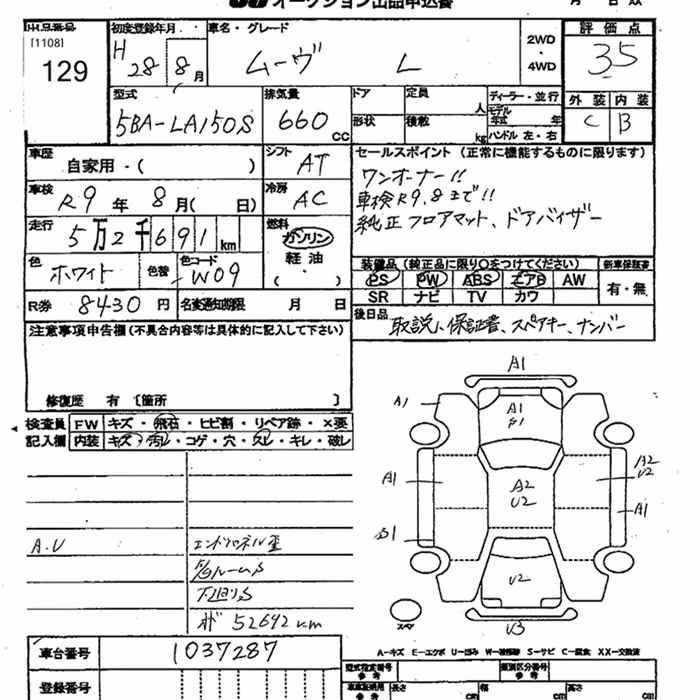 オークション出品申込書
月 日
出品番号 初度登録年月 車名・グレード 2WD ・ 4WD 評価点
[1108] 129 H28 8月 ムーヴ L 3.5
型式 排気量 ドア 定員 人 ディーラー・並行 外装 内装
5BA-LA150S 660 cc 形状 積載 kg モデル年式 年 ハンドル 左・右 C B
車歴 自家用・( ) シフト AT セールスポイント (正常に機能するものに限ります)
ワンオーナー!!
車検 R9年 8月( 日) 冷房 AC 車検R9.8まで!!
純正フロアマット、ドアバイザー
走行 5万2千691km 燃料 ガソリン 軽油 ( ・ )
色 ホワイト 色替 色コード W09
装備品 (純正品に限り○をつけてください) 新車保証書
PS PW ABS エアB AW 有・無
SR ナビ TV カワ
R券 8430円 名変通知期限 月 日
後日品 取説、保証書、スペアキー、ナンバー
注意事項申告欄 (不具合内容等は具体的に記入して下さい)
修復歴 有 [箇所 ]
検査員 FW キズ・飛石・ヒビ割・リペア跡・×要
記入欄 内装 キズ・汚レ・コゲ・穴・スレ・キレ・破レ
A1
A1 A1
A1 A2 U2 A2 U2
A1
S1
U2
U3
スペア
A.U
F/GルームS
下回りS
52692km
A-キズ E-エクボ U-凹み W-補修跡 S-サビ C-腐食 XX-交換済
車台番号 1037287
登録番号
型式指定番号 参考 類別区分番号 参考
長さ cm 幅 cm 高さ cm